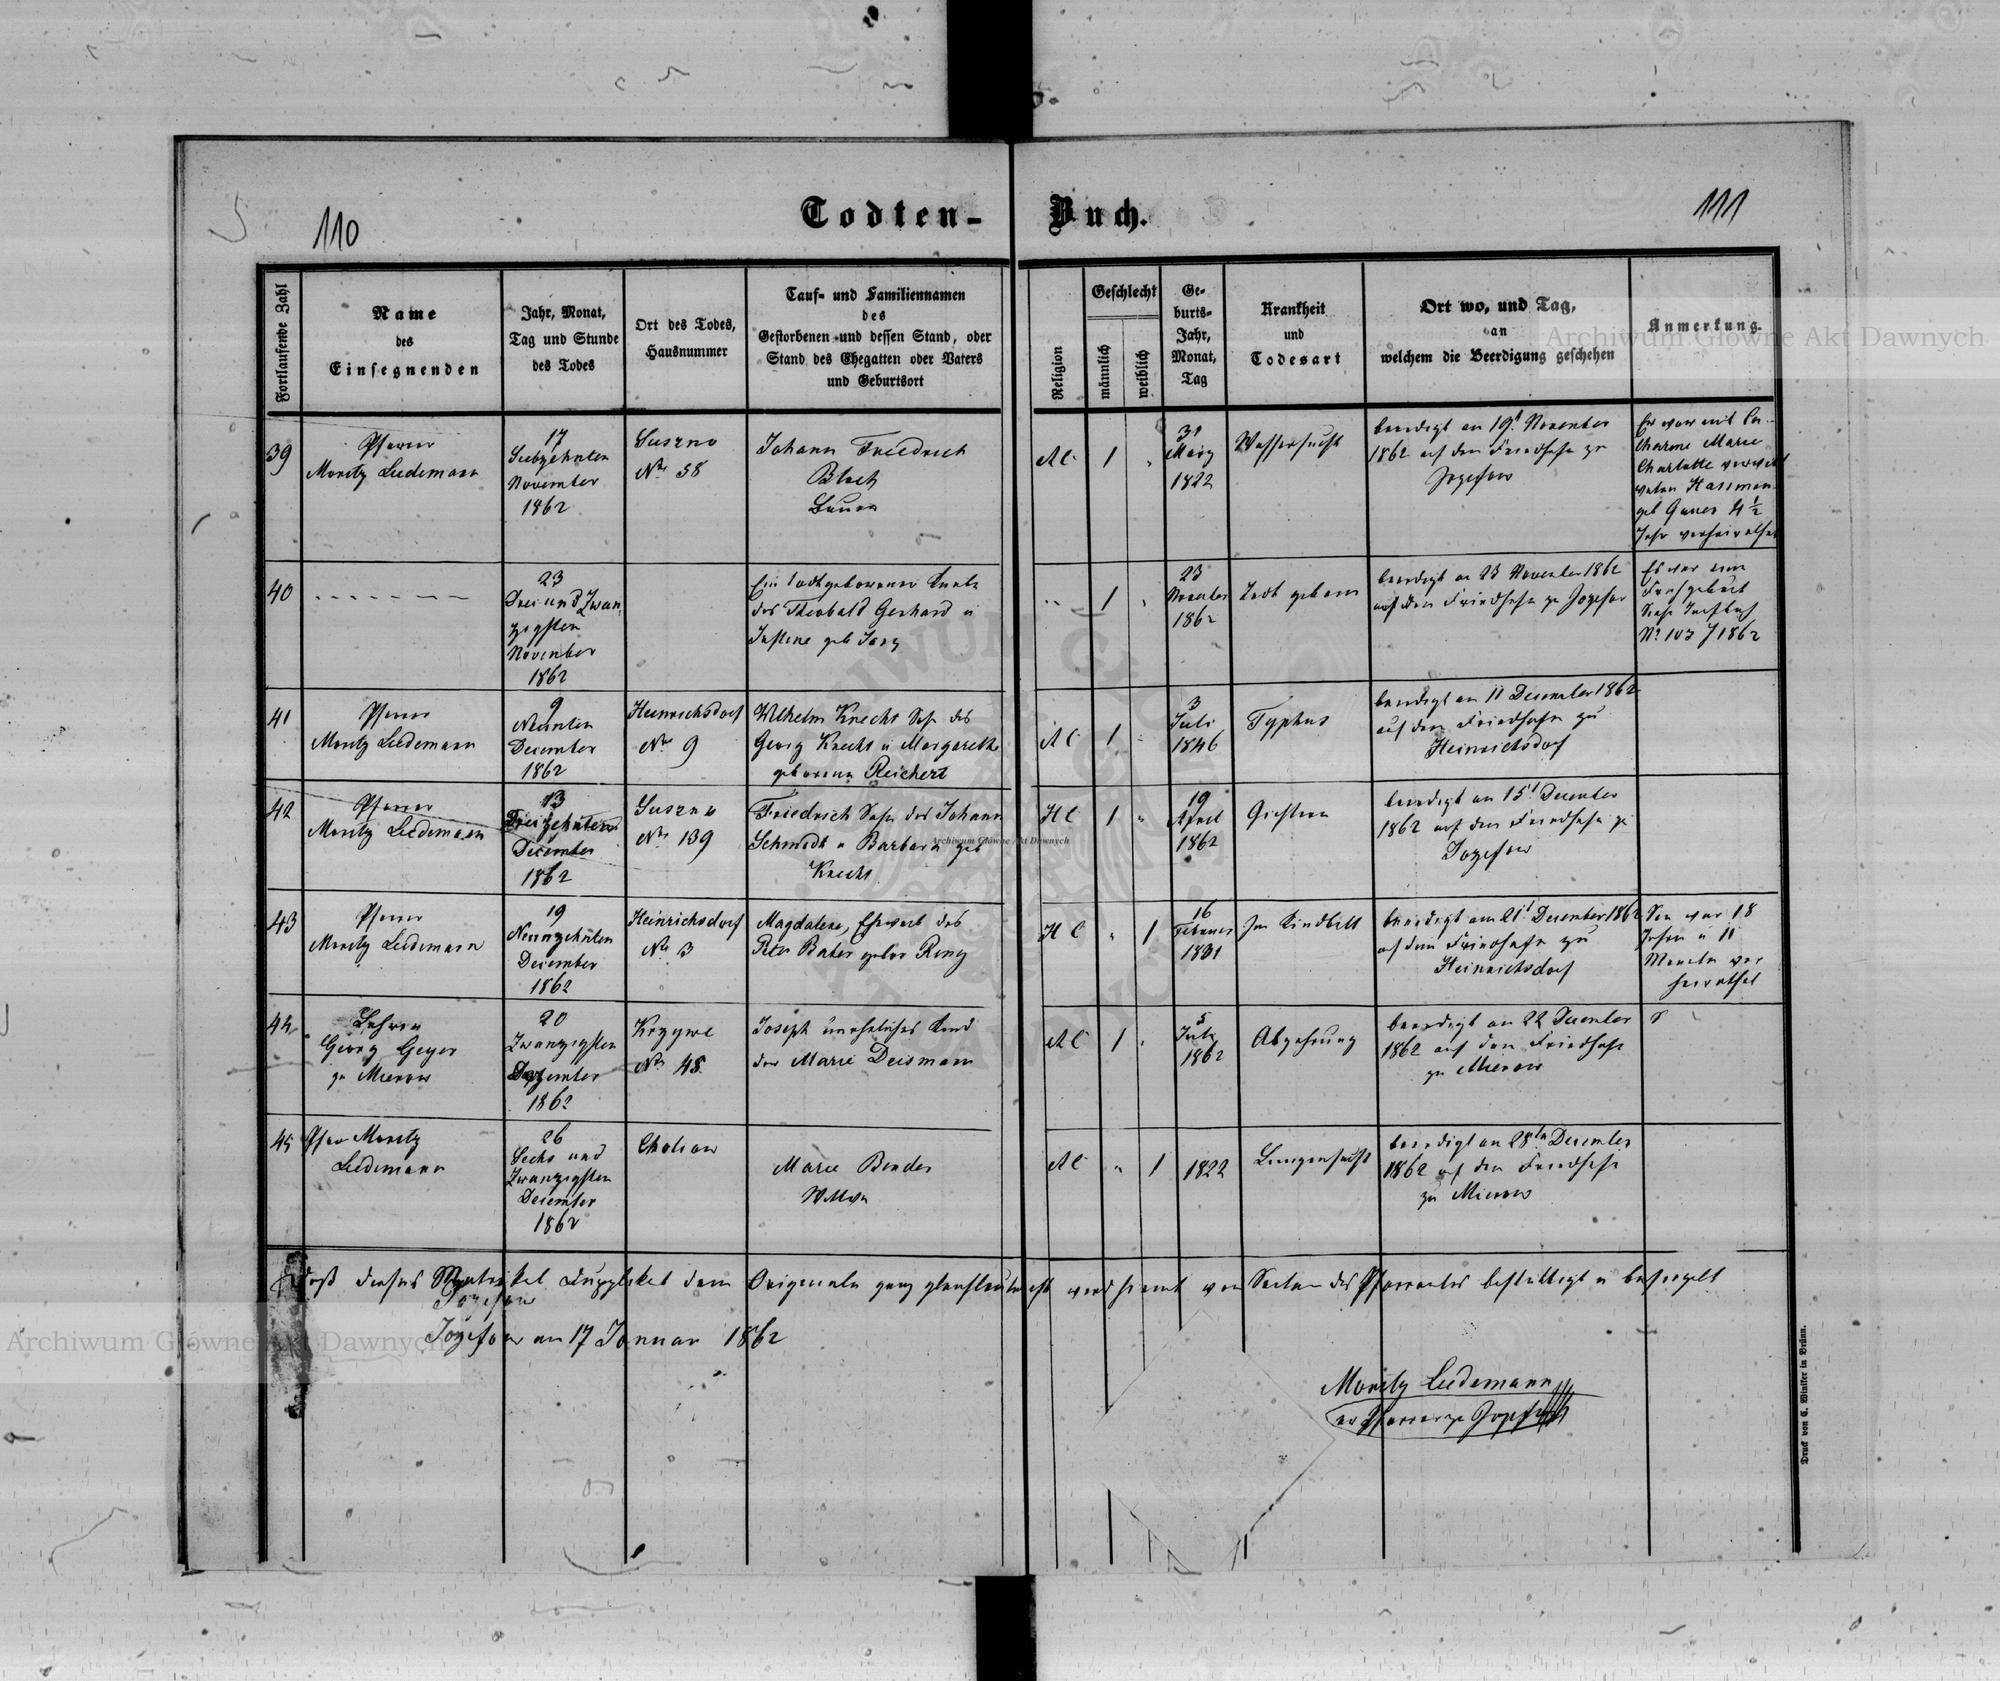 110
Todten-
Buch.
111
Fortlaufende Zahl
Name
des
Einsegnenden
Jahr, Monat,
Tag und Stunde
des Todes
Ort des Todes,
Hausnummer
Tauf- und Familiennamen
des
Gestorbenen und dessen Stand, oder
Stand des Ehegatten oder Vaters
und Geburtsort
Religion
Geschlecht
männlich
weiblich
Ge-
burts-
Jahr,
Monat,
Tag
Krankheit
und
Todesart
Ort wo, und Tag,
an
welchem die Beerdigung geschehen
Anmerkung.
39
Pfarrer
Moritz Luedemann
17
Siebzehnten
November
1862
Suszno
Nr 58
Johann Friedrich
Bauer
AC
1
31
März
1822
Wassersucht
beerdigt am 19t November
1862 auf dem Friedhofe zu
Jozefow
Er war mit
Marie
Charlotte
geb 4 1/2
Jahr verheirathet
40
23
Drei und Zwan
zigsten
November
1862
Ein todtgeborener Knabe
des Theobald Gerhard u
Justine geb Jarz
1
23
November
1862
Todt geboren
beerdigt am 23 November 1862
auf dem Friedhofe zu Jozefow
Es war eine
Frühgeburt
Siehe Taufbuch
No 103 / 1862
41
Pfarrer
Moritz Luedemann
9
Neunten
December
1862
Heinrichsdorf
Nr 9
Wilhelm Knecht Sohn des
Georg Knecht u Margarethe
geborene Reichert
AC
1
3
Juli
1846
Typhus
beerdigt am 11 December 1862
auf dem Friedhofe zu
Heinrichsdorf
42
Pfarrer
Moritz Luedemann
13
Dreizehnten
December
1862
Suszno
Nr 139
Friedrich Sohn des Johann
Schmidt u Barbara geb
Knecht
HC
1
19
April
1862
beerdigt am 15t December
1862 auf dem Friedhofe zu
Jozefow
43
Pfarrer
Moritz Luedemann
19
Neunzehnten
December
1862
Heinrichsdorf
Nr 3
Magdalena, Eheweib des
Peter Bater gebor Rung
HC
1
16
Februar
1831
Im Kindbett
beerdigt am 21t December 1862
auf dem Friedhofe zu
Heinrichsdorf
Sie war 18
Jahre u 11
Monate ver
heirathet
44
Lehrer
Georg Geyer
zu Mierow
20
Zwanzigsten
Dezember
1862
Krzywe
Nr 48
Joseph unehliches Kind
der Marie Deismann
AC
1
5
July
1862
Abzehrung
beerdigt am 22 December
1862 auf dem Friedhofe
zu Mierow
45
Pfarr Moritz
Luedemann
26
Sechs und
Zwanzigsten
December
1862
Choliow
Marie Bender
Wittwe
AC
1
1822
Lungensucht
beerdigt am 28ten December
1862 auf dem Friedhofe
zu Mierow
Daß dieses Matrikel Dupplikat dem Originale ganz gleichlautend ist wird hiemit von Seiten des Pfarramtes bestättigt u besiegelt
Jozefow
Jozefow am 17 Januar 1862
Moritz Luedemann
ev Pfarrer zu Jozefow
Druck von C. Winiker in Brünn.
Archiwum Główne Akt Dawnych
Archiwum Główne Akt Dawnych
Archiwum Główne Akt Dawnych